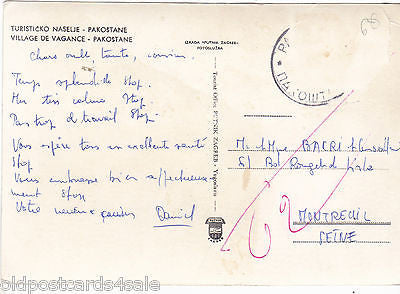 TURISTIČKO NASELJE - PAKOSTANE
VILLAGE DE VAGANCE - PAKOSTANE
IZRADA »PUTNIK ZAGREB«
FOTOSLUŽBA
Chers oncle, tante, cousins.
Temps splendide stop.
Mer très calme stop.
Pas trop de travail stop
Vous espère tous en excellente santé
stop
Vous embrasse bien affectueuse-
ment stop
Votre neveu & cousin Daniel
Tourist Office PUTNIK ZAGREB - Yugoslavia
M. et Mme BACRI
51 Bd Rouget de Lisle
MONTREUIL
SEINE
oldpostcards4sale